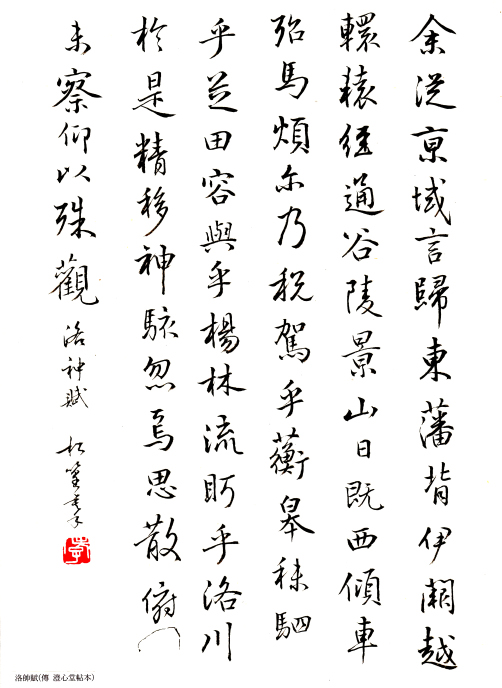 余從京域言歸東藩背伊闕越
轘轅經通谷陵景山日既西傾車
殆馬煩尔乃税駕乎蘅皋秣駟
乎芝田容與乎楊林流眄乎洛川
於是精移神駭忽焉思散俯則
未察仰以殊觀 洛神賦
洛帥賦(傳 澄心堂帖本)